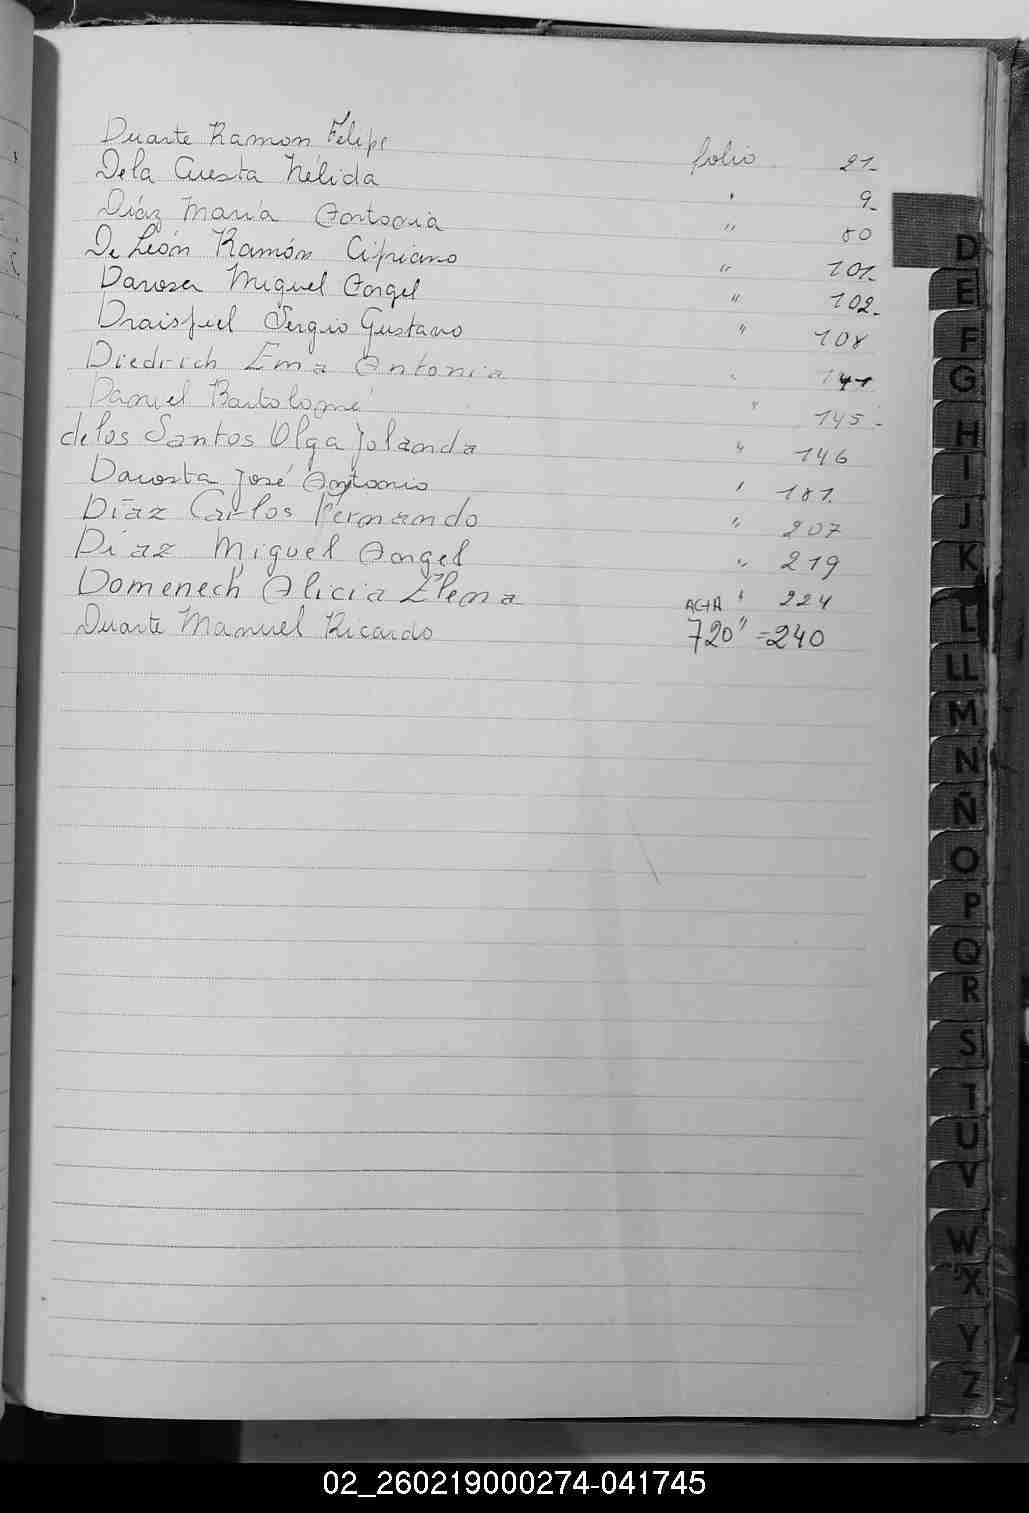 Duarte Ramon Felipe folio 21-
De la Cuesta Nélida " 9-
Díaz María Antonia " 80
De León Ramón Cipriano " 101-
Darosa Miguel Angel " 102-
Draisfuel Sergio Gustavo " 108
Diedrich Ema Antonia " 141
Daniel Bartolomé " 145-
de los Santos Olga Jolanda " 146
Dacosta José Antonio " 181-
Díaz Carlos Fernando " 207
Diaz Miguel Angel " 219
Domenech Alicia Elena " 224
ACTA
Duarte Manuel Ricardo 720 " =240
D
E
F
G
H
I
J
K
L
LL
M
N
Ñ
O
P
Q
R
S
T
U
V
W
X
Y
Z
02_260219000274-041745